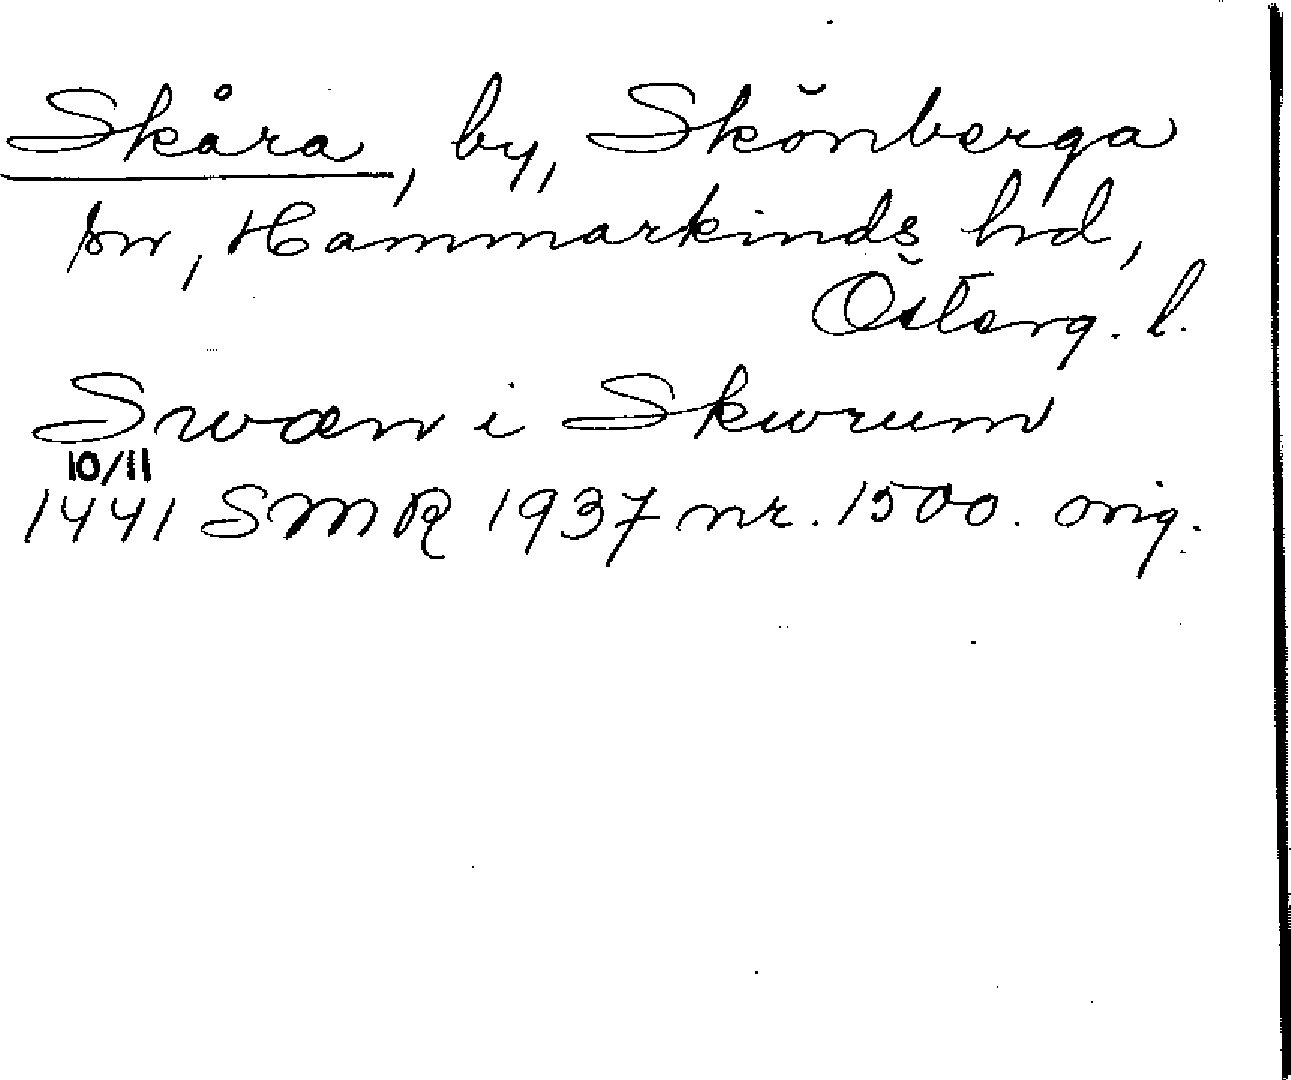 Skåra, by, Skönberga
sn, Hammarkinds hd,
Österg. l.
Swæn i Skurum
10/11
1441 SMR 1937 nr. 1500. orig.